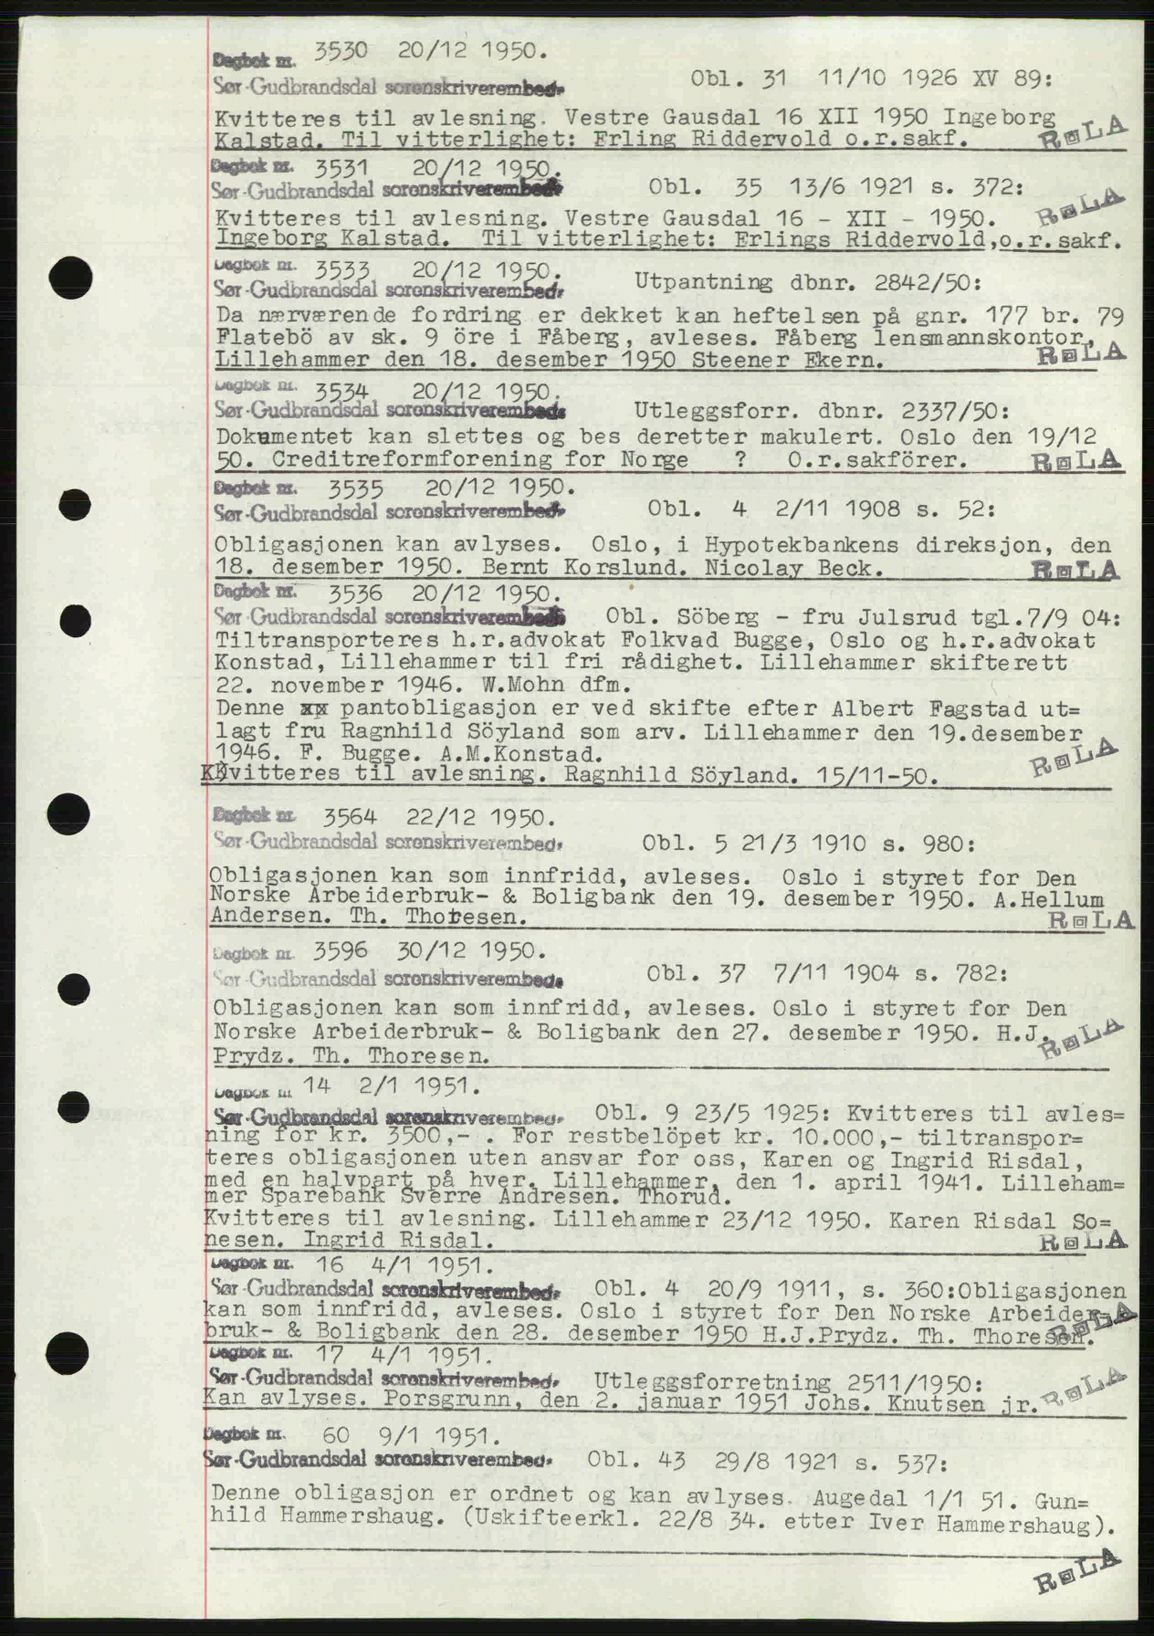 Dagbok nr. 3530 20/12 1950.
Sør-Gudbrandsdal sorenskriverembed. Obl. 31 11/10 1926 XV 89:
Kvitteres til avlesning. Vestre Gausdal 16 XII 1950 Ingeborg
Kalstad. Til vitterlighet: Erling Riddervold o.r.sakf. R◘LA
Dagbok nr. 3531 20/12 1950.
Sør-Gudbrandsdal sorenskriverembed. Obl. 35 13/6 1921 s. 372:
Kvitteres til avlesning. Vestre Gausdal 16 - XII - 1950. R◘LA
Ingeborg Kalstad. Til vitterlighet: Erlings Riddervold,o.r.sakf.
Dagbok nr. 3533 20/12 1950.
Sør-Gudbrandsdal sorenskriverembed. Utpantning dbnr. 2842/50:
Da nærværende fordring er dekket kan heftelsen på gnr. 177 br. 79
Flatebö av sk. 9 öre i Fåberg, avleses. Fåberg lensmannskontor,
Lillehammer den 18. desember 1950 Steener Ekern. R◘LA
Dagbok nr. 3534 20/12 1950.
Sør-Gudbrandsdal sorenskriverembed. Utleggsforr. dbnr. 2337/50:
Dokumentet kan slettes og bes deretter makulert. Oslo den 19/12
50. Creditreformforening for Norge ? O.r.sakförer. R◘LA
Dagbok nr. 3535 20/12 1950.
Sør-Gudbrandsdal sorenskriverembed. Obl. 4 2/11 1908 s. 52:
Obligasjonen kan avlyses. Oslo, i Hypotekbankens direksjon, den
18. desember 1950. Bernt Korslund. Nicolay Beck. R◘LA
Dagbok nr. 3536 20/12 1950.
Sør-Gudbrandsdal sorenskriverembed. Obl. Söberg - fru Julsrud tgl.7/9 04:
Tiltransporteres h.r.advokat Folkvad Bugge, Oslo og h.r.advokat
Konstad, Lillehammer til fri rådighet. Lillehammer skifterett
22. november 1946. W.Mohn dfm.
Denne xx pantobligasjon er ved skifte efter Albert Fagstad ut=
lagt fru Ragnhild Söyland som arv. Lillehammer den 19.desember
1946. F. Bugge. A.M.Konstad. R◘LA
Kvitteres til avlesning. Ragnhild Söyland. 15/11-50.
Dagbok nr. 3564 22/12 1950.
Sør-Gudbrandsdal sorenskriverembed. Obl. 5 21/3 1910 s. 980:
Obligasjonen kan som innfridd, avleses. Oslo i styret for Den
Norske Arbeiderbruk- & Boligbank den 19. desember 1950. A.Hellum
Andersen. Th. Thoresen. R◘LA
Dagbok nr. 3596 30/12 1950.
Sør-Gudbrandsdal sorenskriverembed. Obl. 37 7/11 1904 s. 782:
Obligasjonen kan som innfridd, avleses. Oslo i styret for Den
Norske Arbeiderbruk- & Boligbank den 27. desember 1950. H.J. R◘LA
Prydz. Th. Thoresen.
Dagbok nr. 14 2/1 1951.
Sør-Gudbrandsdal sorenskriverembed. Obl. 9 23/5 1925: Kvitteres til avles=
ning for kr. 3500,- . For restbelöpet kr. 10.000,- tiltranspor=
teres obligasjonen uten ansvar for oss, Karen og Ingrid Risdal,
med en halvpart på hver. Lillehammer, den 1. april 1941. Lilleham=
mer Sparebank Sverre Andresen. Thorud.
Kvitteres til avlesning. Lillehammer 23/12 1950. Karen Risdal So=
nesen. Ingrid Risdal. R◘LA
Dagbok nr. 16 4/1 1951.
Sør-Gudbrandsdal sorenskriverembed. Obl. 4 20/9 1911, s. 360:Obligasjonen
kan som innfridd, avleses. Oslo i styret for Den Norske Arbeider=
bruk- & Boligbank den 28. desember 1950 H.J.Prydz. Th. Thoresen. R◘LA
Dagbok nr. 17 4/1 1951.
Sør-Gudbrandsdal sorenskriverembed. Utleggsforretning 2511/1950:
Kan avlyses. Porsgrunn, den 2. januar 1951 Johs. Knutsen jr. R◘LA
Dagbok nr. 60 9/1 1951.
Sør-Gudbrandsdal sorenskriverembed. Obl. 43 29/8 1921 s. 537:
Denne obligasjon er ordnet og kan avlyses. Augedal 1/1 51. Gun=
hild Hammershaug. (Uskifteerkl. 22/8 34. etter Iver Hammershaug).
R◘LA